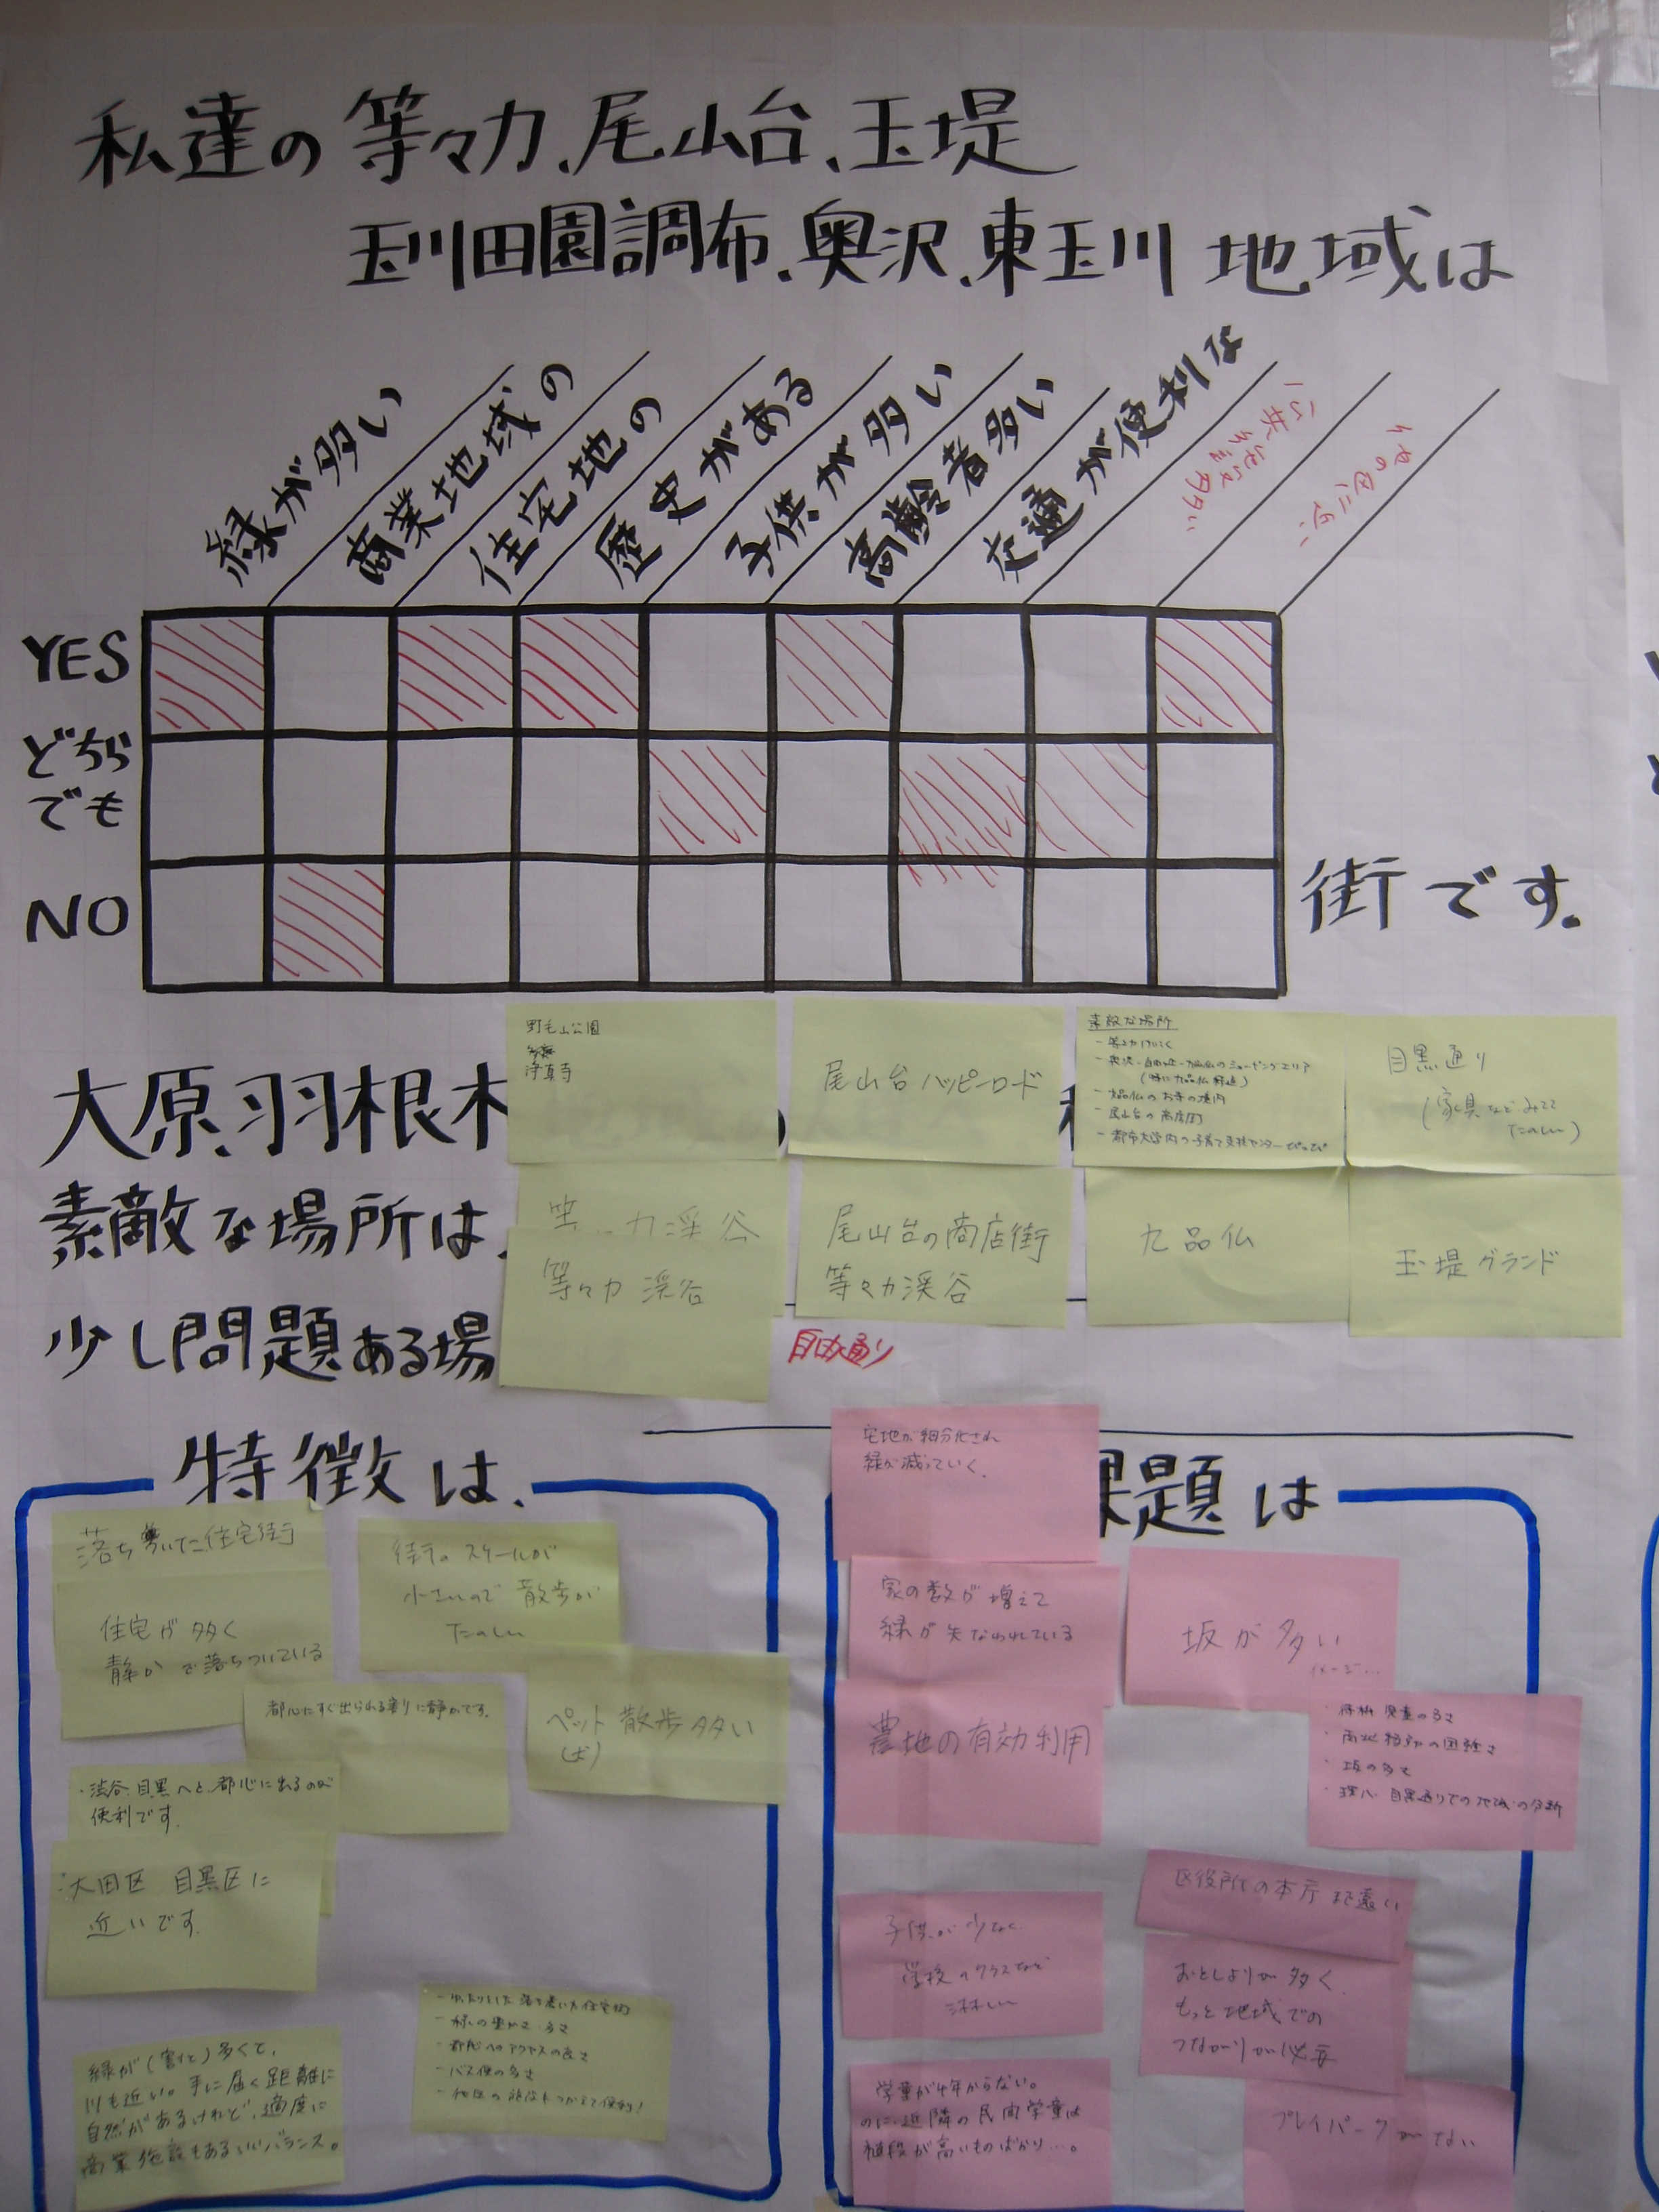 私達の等々力、尾山台、玉堤
玉川田園調布、奥沢、東玉川 地域は
緑が多い
商業地域の
住宅地の
歴史がある
子供が多い
高齢者多い
交通が便利な
公共施設
多い
YES
どちら
でも
NO
街です。
大原、羽根木
野毛山公園
浄真寺
尾山台ハッピーロード
素敵な場所
- 等々力けいこく
- 奥沢・自由が丘・九品仏のショッピングエリア
(特に九品仏緑道)
- 九品仏のお寺の境内
- 尾山台の商店街
- 都市大学内の子育て支援センターぴっぴ
目黒通り
(家具などみてて
たのしい)
素敵な場所は、
力渓谷
等々力 渓谷
尾山台の商店街
等々力渓谷
九品仏
玉堤グランド
少し問題ある場
自由通り
特徴は、
落ち着いた住宅街
住宅が多く
静かで落ちついている
街のスケールが
小さいので散歩が
たのしい
都心にすぐ出られる割りに静かです。
ペット散歩多い
・渋谷、目黒へと、都心に出るのが
便利です。
大田区 目黒区に
近いです。
- ゆったりした 落ち着いた住宅街
- 緑の豊かさ・多さ
- 都心へのアクセスの良さ
- バス便の多さ
緑が(割と)多くて、
川も近い。手に届く距離に
自然があるけれど、適度に
商業施設もあるいいバランス。
課題は
宅地が細分化され
緑が減っていく。
家の数が増えて
緑が失なわれている
農地の有効利用
坂が多い
イメージ…
・待機児童の多さ
・南北移動の困難さ
・坂の多さ
・環八、目黒通りでの地域の分断
区役所の本庁まで遠い
子供が少なく
学校のクラスなど
淋しい
おとしよりが多く、
もっと地域での
つながりが必要
学童が4年からない。
のに、近隣の民間学童は
値段が高いものばかり…。
プレイパークがない